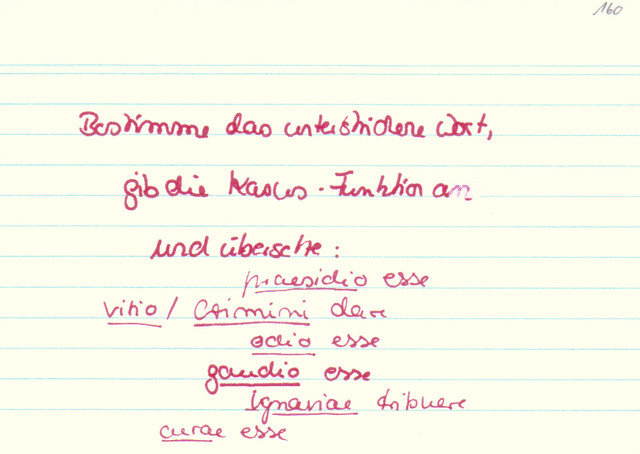 160
Bestimme das unterstrichene Wort,
gib die Kasus-Funktion an
und übersetze:
praesidio esse
vitio / crimini dare
odio esse
gaudio esse
Ignaviae tribuere
curae esse